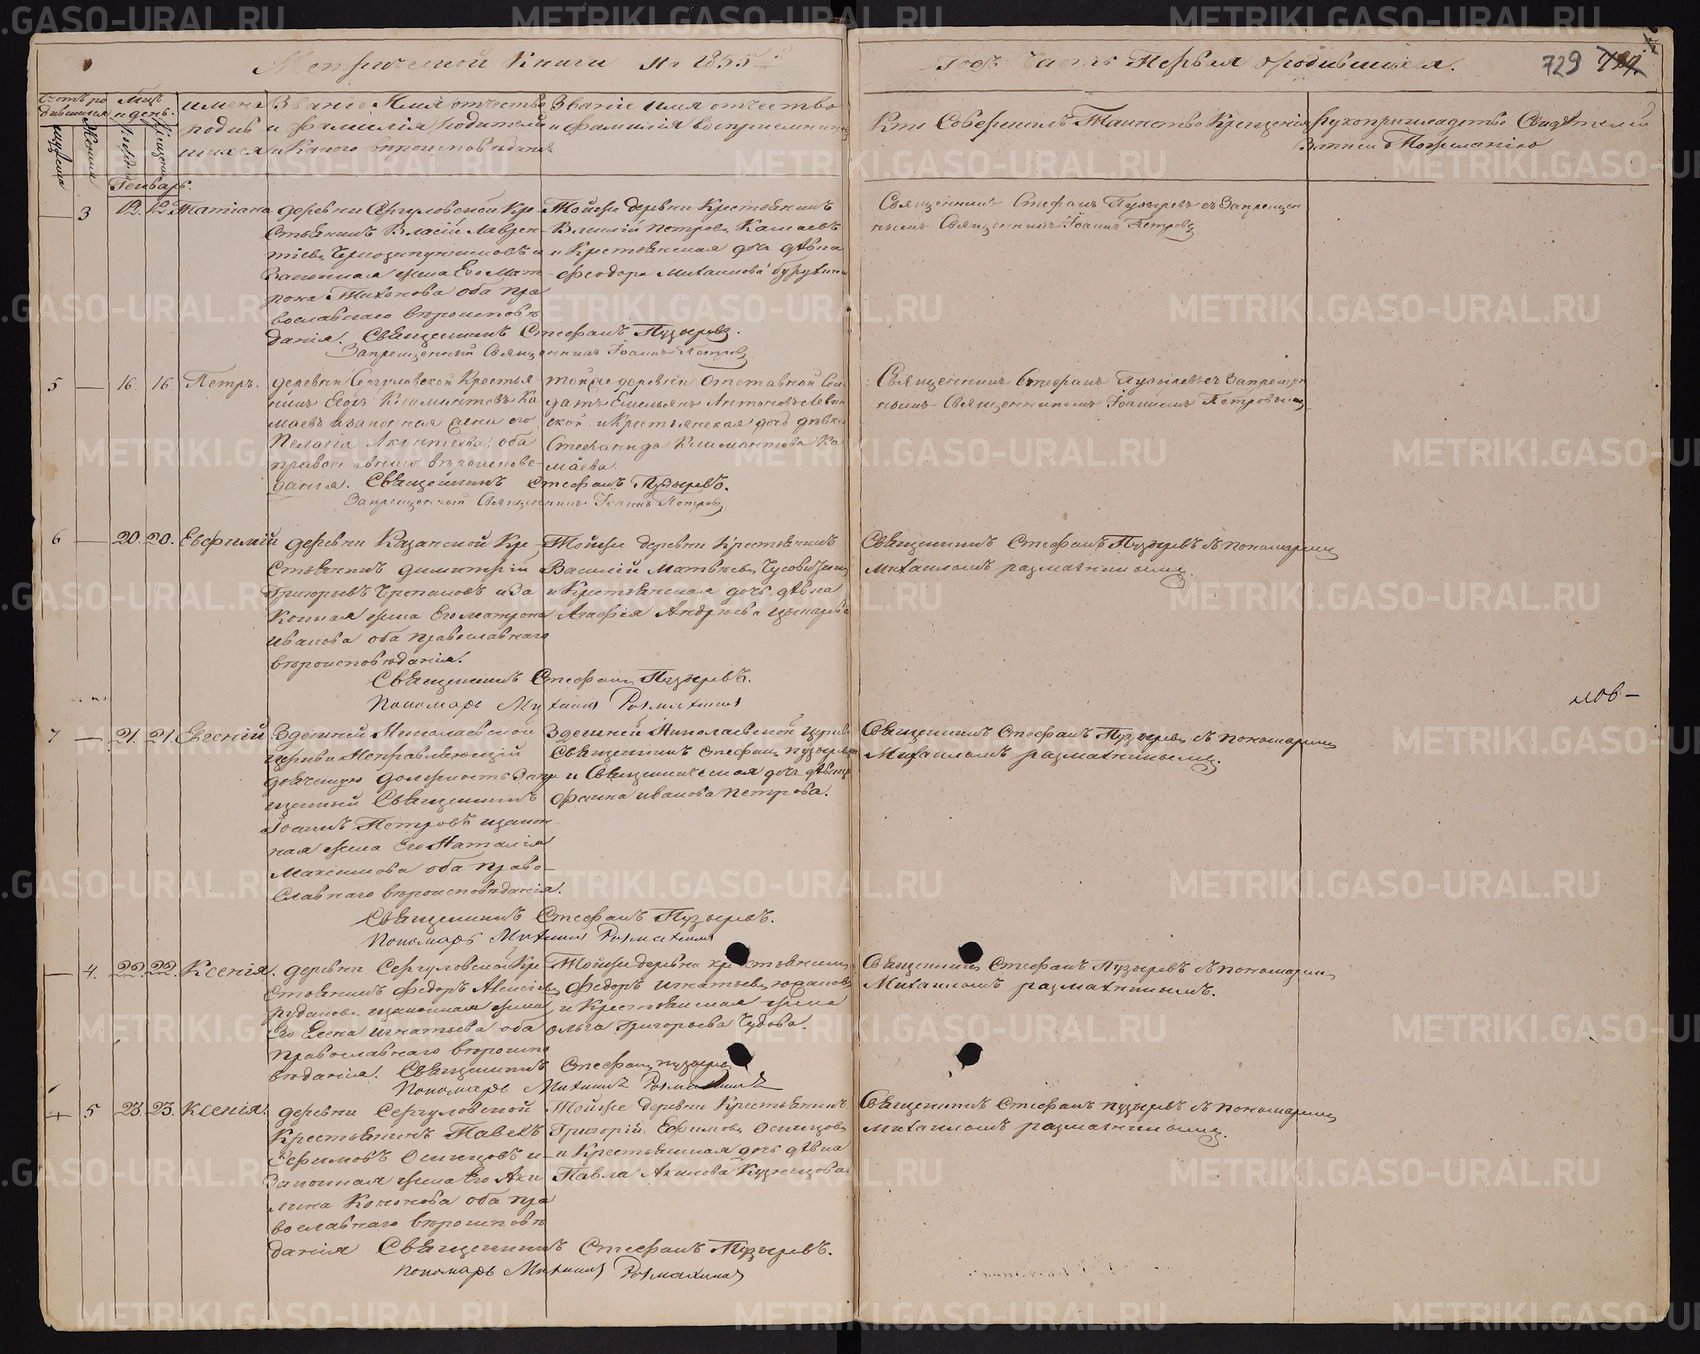 Метрической Книги На 1855й
Годъ Часть Первая о родившихся.
729
Счетъ родившихся
мужеска
женска
Мѣс. и день.
рождения
крещения
имена родившихся
Званіе Имя отчество и фамилія родителей и Какого вѣроисповѣданія
Званіе имя отчество и фамилія воспріемниковъ
Кто Совершилъ Таинство Крещенія
рукоприкладство Свидѣтелей Записи по желанію
Генварь.
3
12. 12.
Татіана
деревни Сергуловской Кре
стьянинъ Власій Лаврен
тіевъ
Законная жена Его Мат
рона Тихонова оба пра
вославнаго вѣроисповѣ
данія. Священникъ Стефанъ Пузыревъ.
Запрещенный Священникъ Іоаннъ Петровъ
Тойже деревни Крестьянинъ
Василій Петровъ Камаевъ
и Крестьянская дочь дѣвка
Феодора Михаилова
Священникъ Стефанъ Пузыревъ съ Запрещен
нымъ Священникомъ Іоанномъ Петровымъ
5 — 16. 16.
Петръ.
деревни Сергуловской Крестья
нинъ Егоръ Климантовъ Ка
маевъ и законная жена его
Пелагія оба
православнаго вѣроисповѣ-
данія. Священникъ Стефанъ Пузыревъ.
Запрещенный Священникъ Іоаннъ Петровъ
тойже деревни отставной Сол
датъ Емельянъ Антоновъ
и Крестьянская дочь дѣвка
Степанида Климантова Ка
маева
Священникъ Стефанъ Пузыревъ съ Запрещен
нымъ Священникомъ Іоанномъ Петровымъ
6 — 20. 20.
Евфимій
деревни Казанской Кре
стьянинъ Димитрій
Григорьевъ Черепановъ и За
конная жена Его матрона
Иванова оба православнаго
вѣроисповѣданія.
Священникъ Стефанъ Пузыревъ.
Пономарь Михаилъ Размахнинъ
Тойже деревни Крестьянинъ
Василій Матвѣевъ
и Крестьянская дочь дѣвка
Агафія Андреева
Священникъ Стефанъ Пузыревъ съ пономаремъ
Михаиломъ размахнинымъ.
7 — 21. 21.
Евгеній
Здешней Николаевской
церкви Исправляющій
дьяческую должность Запре
щенный Священникъ
Іоаннъ Петровъ и закон
ная жена Его Наталія
Максимова оба право
славнаго вѣроисповѣданія.
Священникъ Стефанъ Пузыревъ.
Пономарь Михаилъ Размахнинъ
Здешней Николаевской церкви
Священникъ Стефанъ пузыревъ
и Священническая дочь дѣвица
Фаина иванова Петрова.
Священникъ Стефанъ Пузыревъ съ пономаремъ
Михаиломъ размахнинымъ.
4. 22. 22.
Ксенія.
деревни Сергуловской Кре
стьянинъ Федоръ Алексѣевъ
рудаковъ и законная жена
Его Елена игнатьева оба
православнаго вѣроиспо
вѣданія. Священникъ Стефанъ пузыревъ
Пономарь Михаилъ Размахнинъ
Тойже деревни крестьянинъ
Федоръ игнатьевъ
и Крестьянская жена
ольга Григорьева Чудова.
Священникъ Стефанъ Пузыревъ съ пономаремъ
Михаиломъ размахнинымъ.
5 23. 23.
Ксенія.
деревни Сергуловской
Крестьянинъ Павелъ
Ефимовъ Осинцовъ и
Законная жена Его Аки
лина Кононова оба пра
вославнаго вѣроисповѣ
данія Священникъ Стефанъ Пузыревъ.
пономарь Михаилъ Размахнинъ
Тойже деревни Крестьянинъ
Григорій Ефимовъ Осинцовъ
и Крестьянская дочь дѣвка
Павла Акилова Кузнецова
Священникъ Стефанъ пузыревъ съ пономаремъ
Михаиломъ размахнинымъ.
METRIKI.GASO-URAL.RU